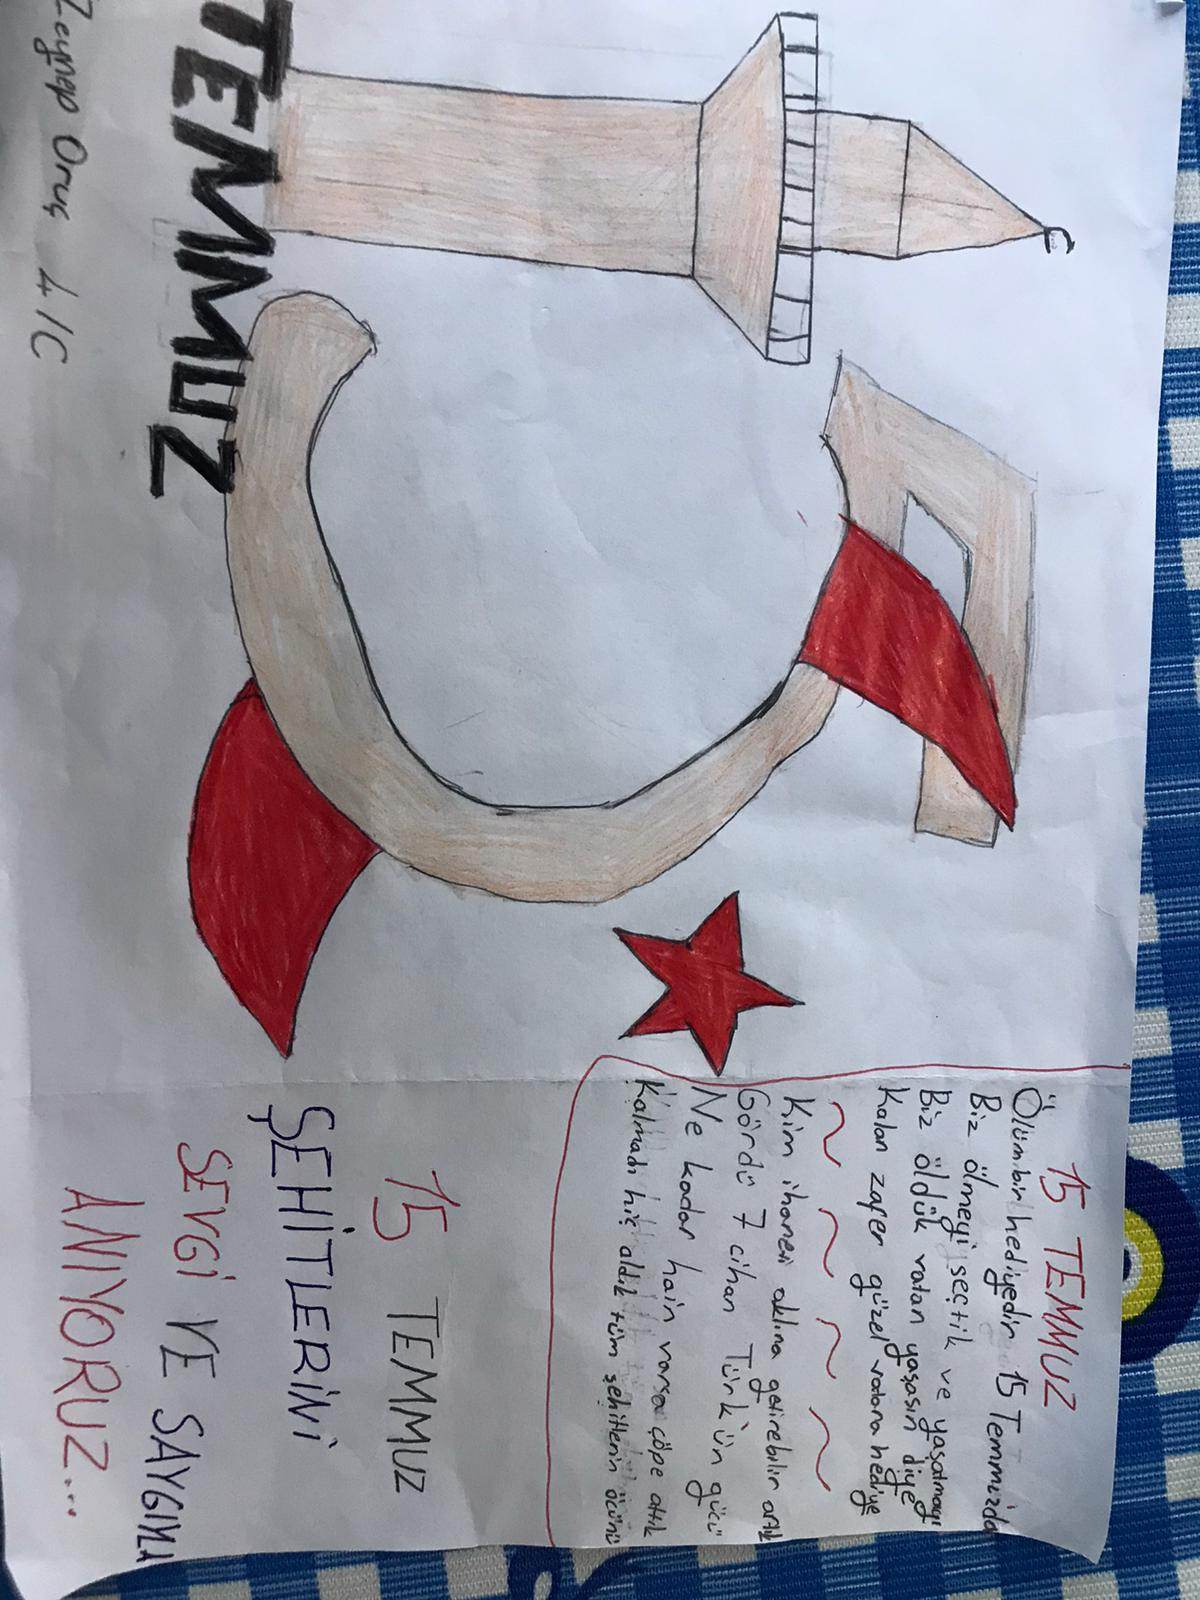 15 TEMMUZ
Ölüm bir hediyedir 15 Temmuzda
Biz ölmeyi seçtik ve yaşatmayı
Biz öldük vatan yaşasın diye
Kalan zafer güzel vatana hediye
Kim ihaneti aklına getirebilir artık
Gördü 7 cihan Türk'ün gücü
Ne kadar hain varsa çöpe attık
Kalmadı hiç aldık tüm şehitlerin öcünü
15 TEMMUZ
ŞEHİTLERİNİ
SEVGİ VE SAYGIYLA
ANIYORUZ...
TEMMUZ
Zeynep Oruç 4/C